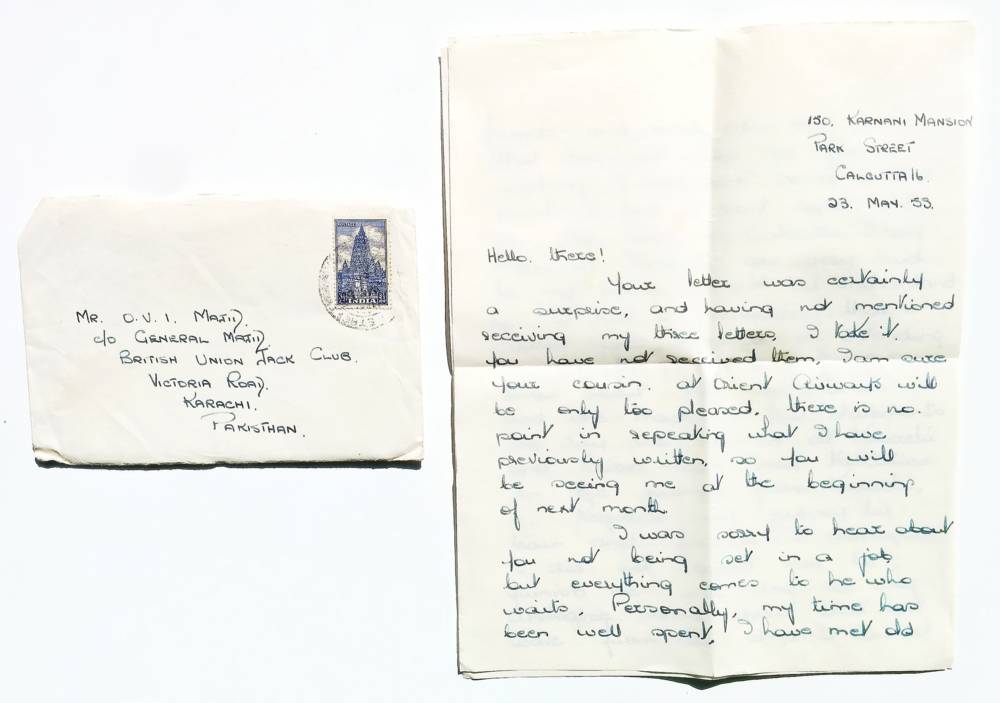 INDIA
MR. D. V. I. MAJID.
c/o GENERAL MAJID,
BRITISH UNION JACK CLUB.
VICTORIA ROAD,
KARACHI.
PAKISTHAN.
150, KARNANI MANSION
PARK STREET
CALCUTTA 16.
23. MAY. 53.
Hello. there!
Your letter was certainly
a surprise, and having not mentioned
receiving my three letters, I take it.
you have not received them, I am sure
your cousin. at Orient Airways will
be only too pleased, there is no.
point in repeating what I have
previously written, so you will
be seeing me at the beginning
of next month.
I was sorry to hear about
you not being set in a job,
but everything comes to he who
waits. Personally, my time has
been well spent, I have met old